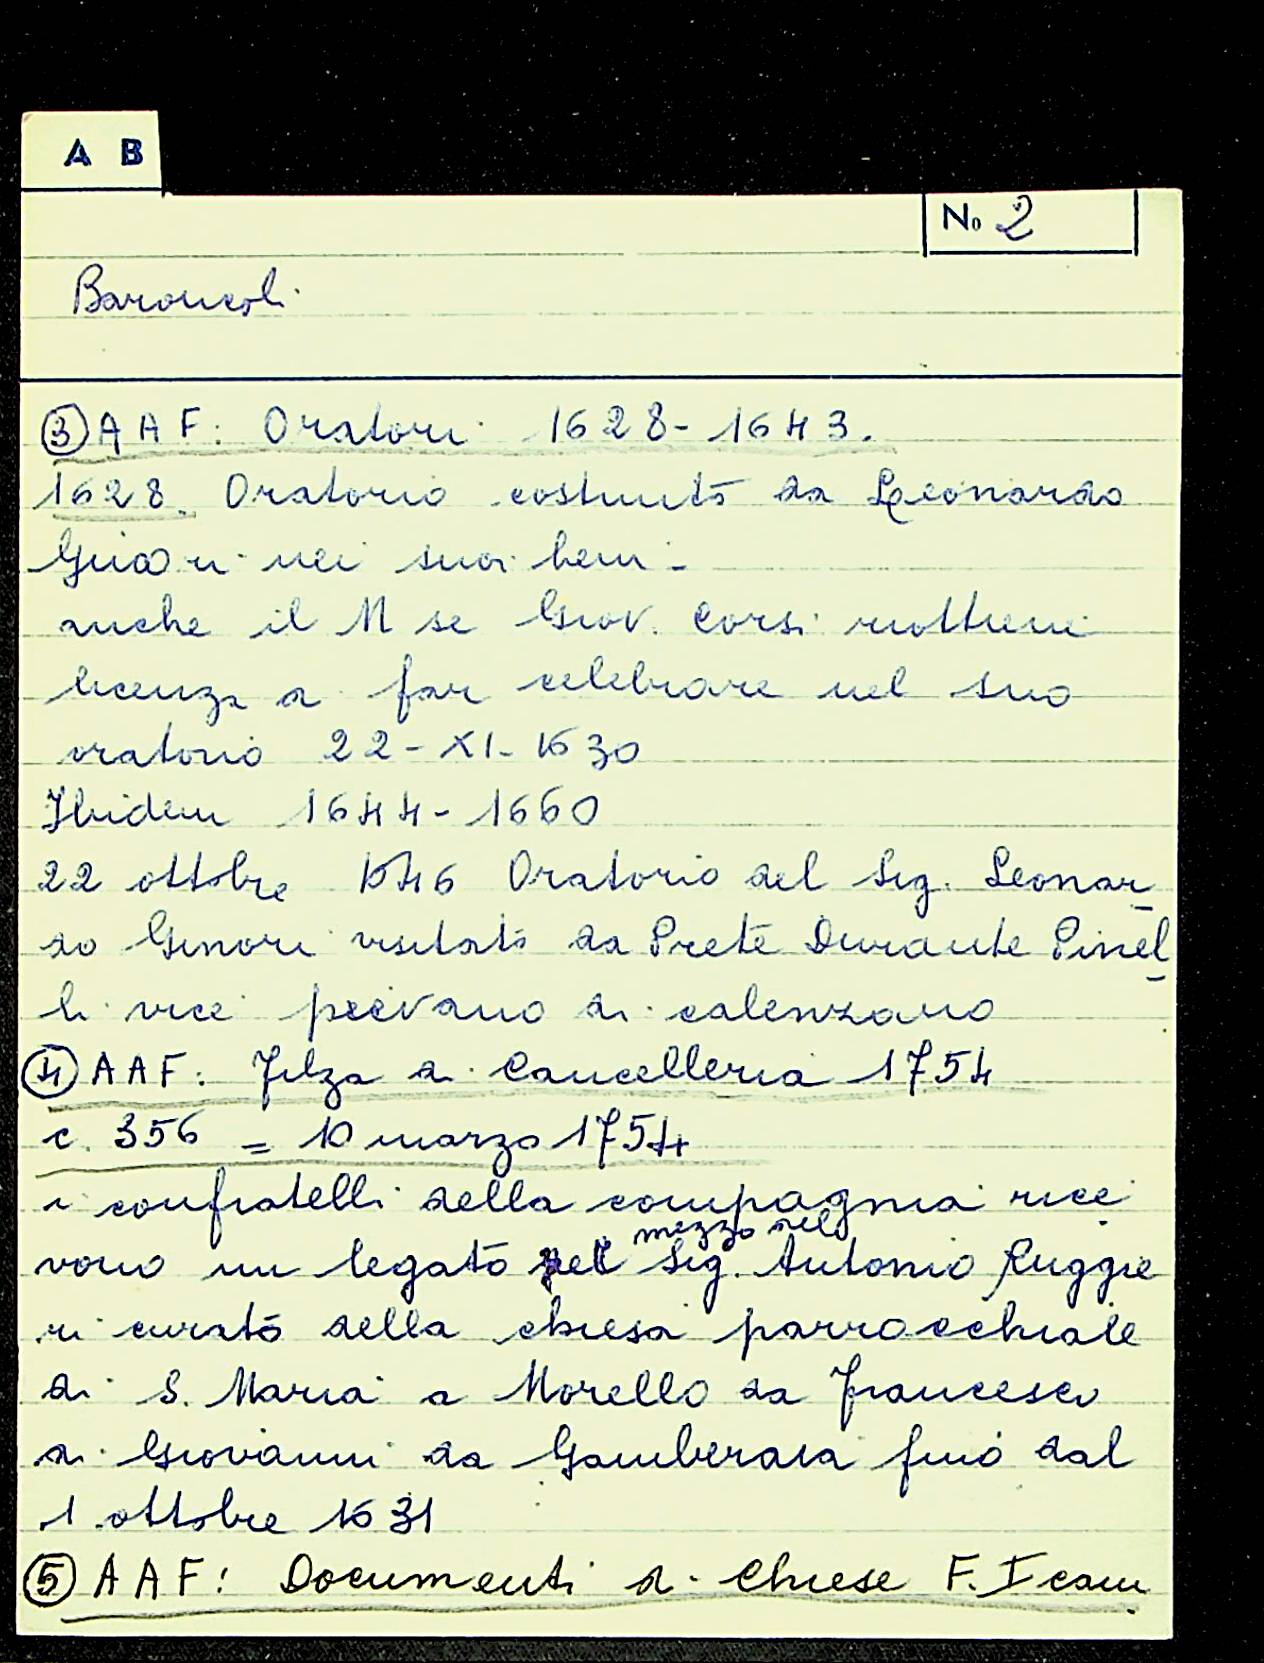 A B
No 2
Baroncoli
③ AAF: Oratori 1628-1643.
1628. Oratorio costruito da Leonardo
Ginori nei suoi beni -
anche il M se Giov. Corsi riottiene
licenza di far celebrare nel suo
oratorio 22-XI-1630
Ibidem 1644-1660
22 ottobre 1646 Oratorio del Sig. Leonar
do Ginori visitato da Prete Durante Pinel
li vice pievano di Calenzano
④ AAF: Filza di Cancelleria 1754
c. 356 = 10 marzo 1754
i confratelli della compagnia rice
vono un legato per mezzo del Sig. Antonio Ruggie
ri curato della chiesa parrocchiale
di S. Maria a Morello da Francesco
di Giovanni da Gamberaia fino dal
1 ottobre 1631
⑤ AAF: Documenti di Chiese F. I cam